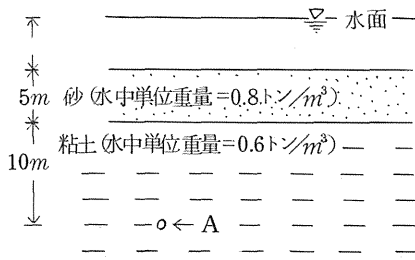 水面
5m 砂(水中単位重量=0.8トン/m³)
粘土(水中単位重量=0.6トン/m³)
10m
A